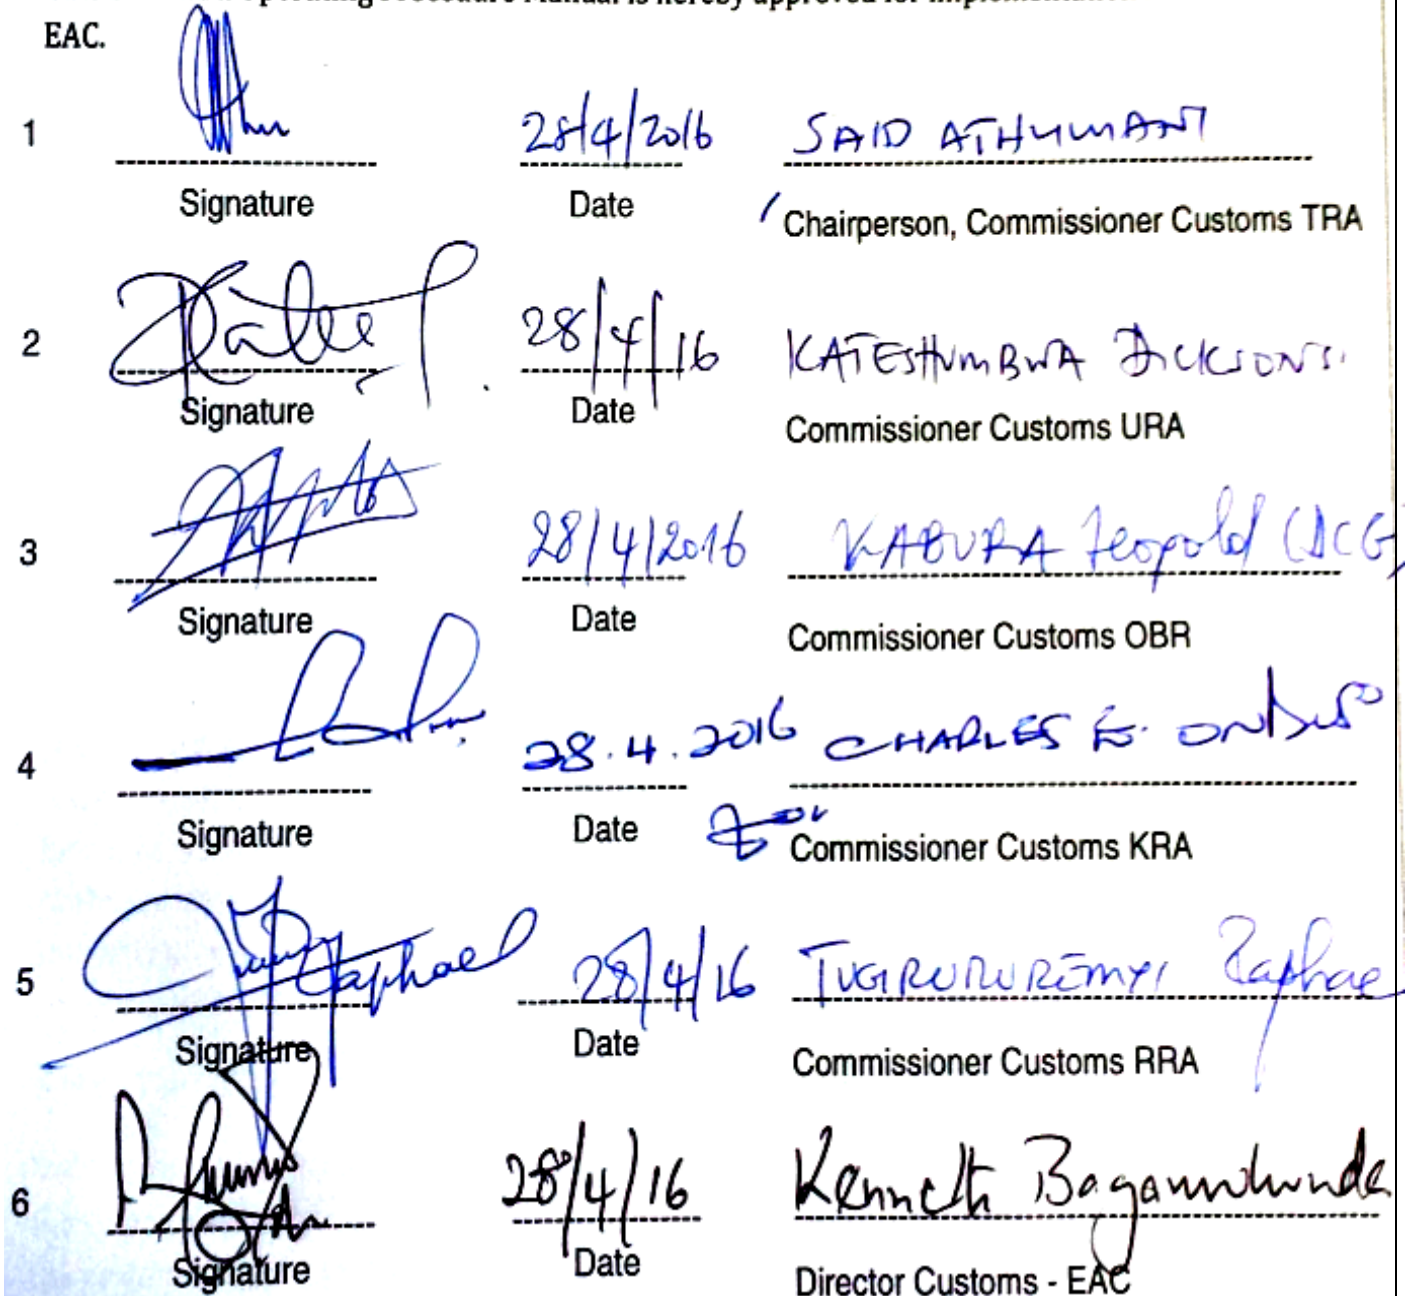 Operating Procedure Manual is hereby approved for implementation
EAC.
1 28/4/2016 SAID ATHUMANI
Signature Date Chairperson, Commissioner Customs TRA
2 28/4/16 KATESHUMBWA DICKSONS.
Signature Date Commissioner Customs URA
3 28/4/2016 KABURA Leopold (DCG)
Signature Date Commissioner Customs OBR
4 28.4.2016 CHARLES E.
Signature Date for Commissioner Customs KRA
5 Raphael 28/4/16 TUGIRUMUREMYI Raphael
Signature Date Commissioner Customs RRA
6 28/4/16 Kenneth Bagamuhunda
Signature Date Director Customs - EAC